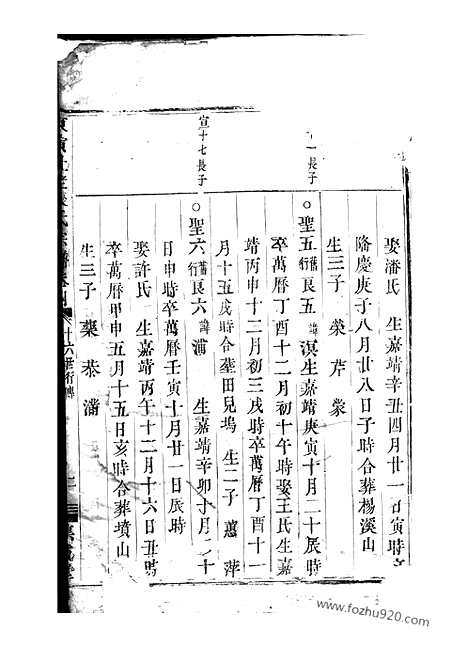 娶潘氏 生嘉靖辛丑四月廿一日寅時
隆慶庚子八月廿八日子時合葬楊溪山
生三子 榮 芹 棠
一長子
○聖五舊行良五諱溟生嘉靖庚寅十月二十辰時
卒萬曆丁酉十二月初十午時娶王氏生嘉
靖丙申十二月初三戌時卒萬曆丁酉十一
月十五戌時合塟田兒塢 生二子 蕙 萍
宣十七長子
○聖六舊行良六諱浦 生嘉靖辛卯十月二十
日申時卒萬曆壬寅十月廿一日辰時
娶許氏 生嘉靖丙午十二月十六日丑時
卒萬曆甲申五月十五日亥時合葬墳山
生三子 蘂 菾 藩
廿六世行傳
www.fozhu920.com